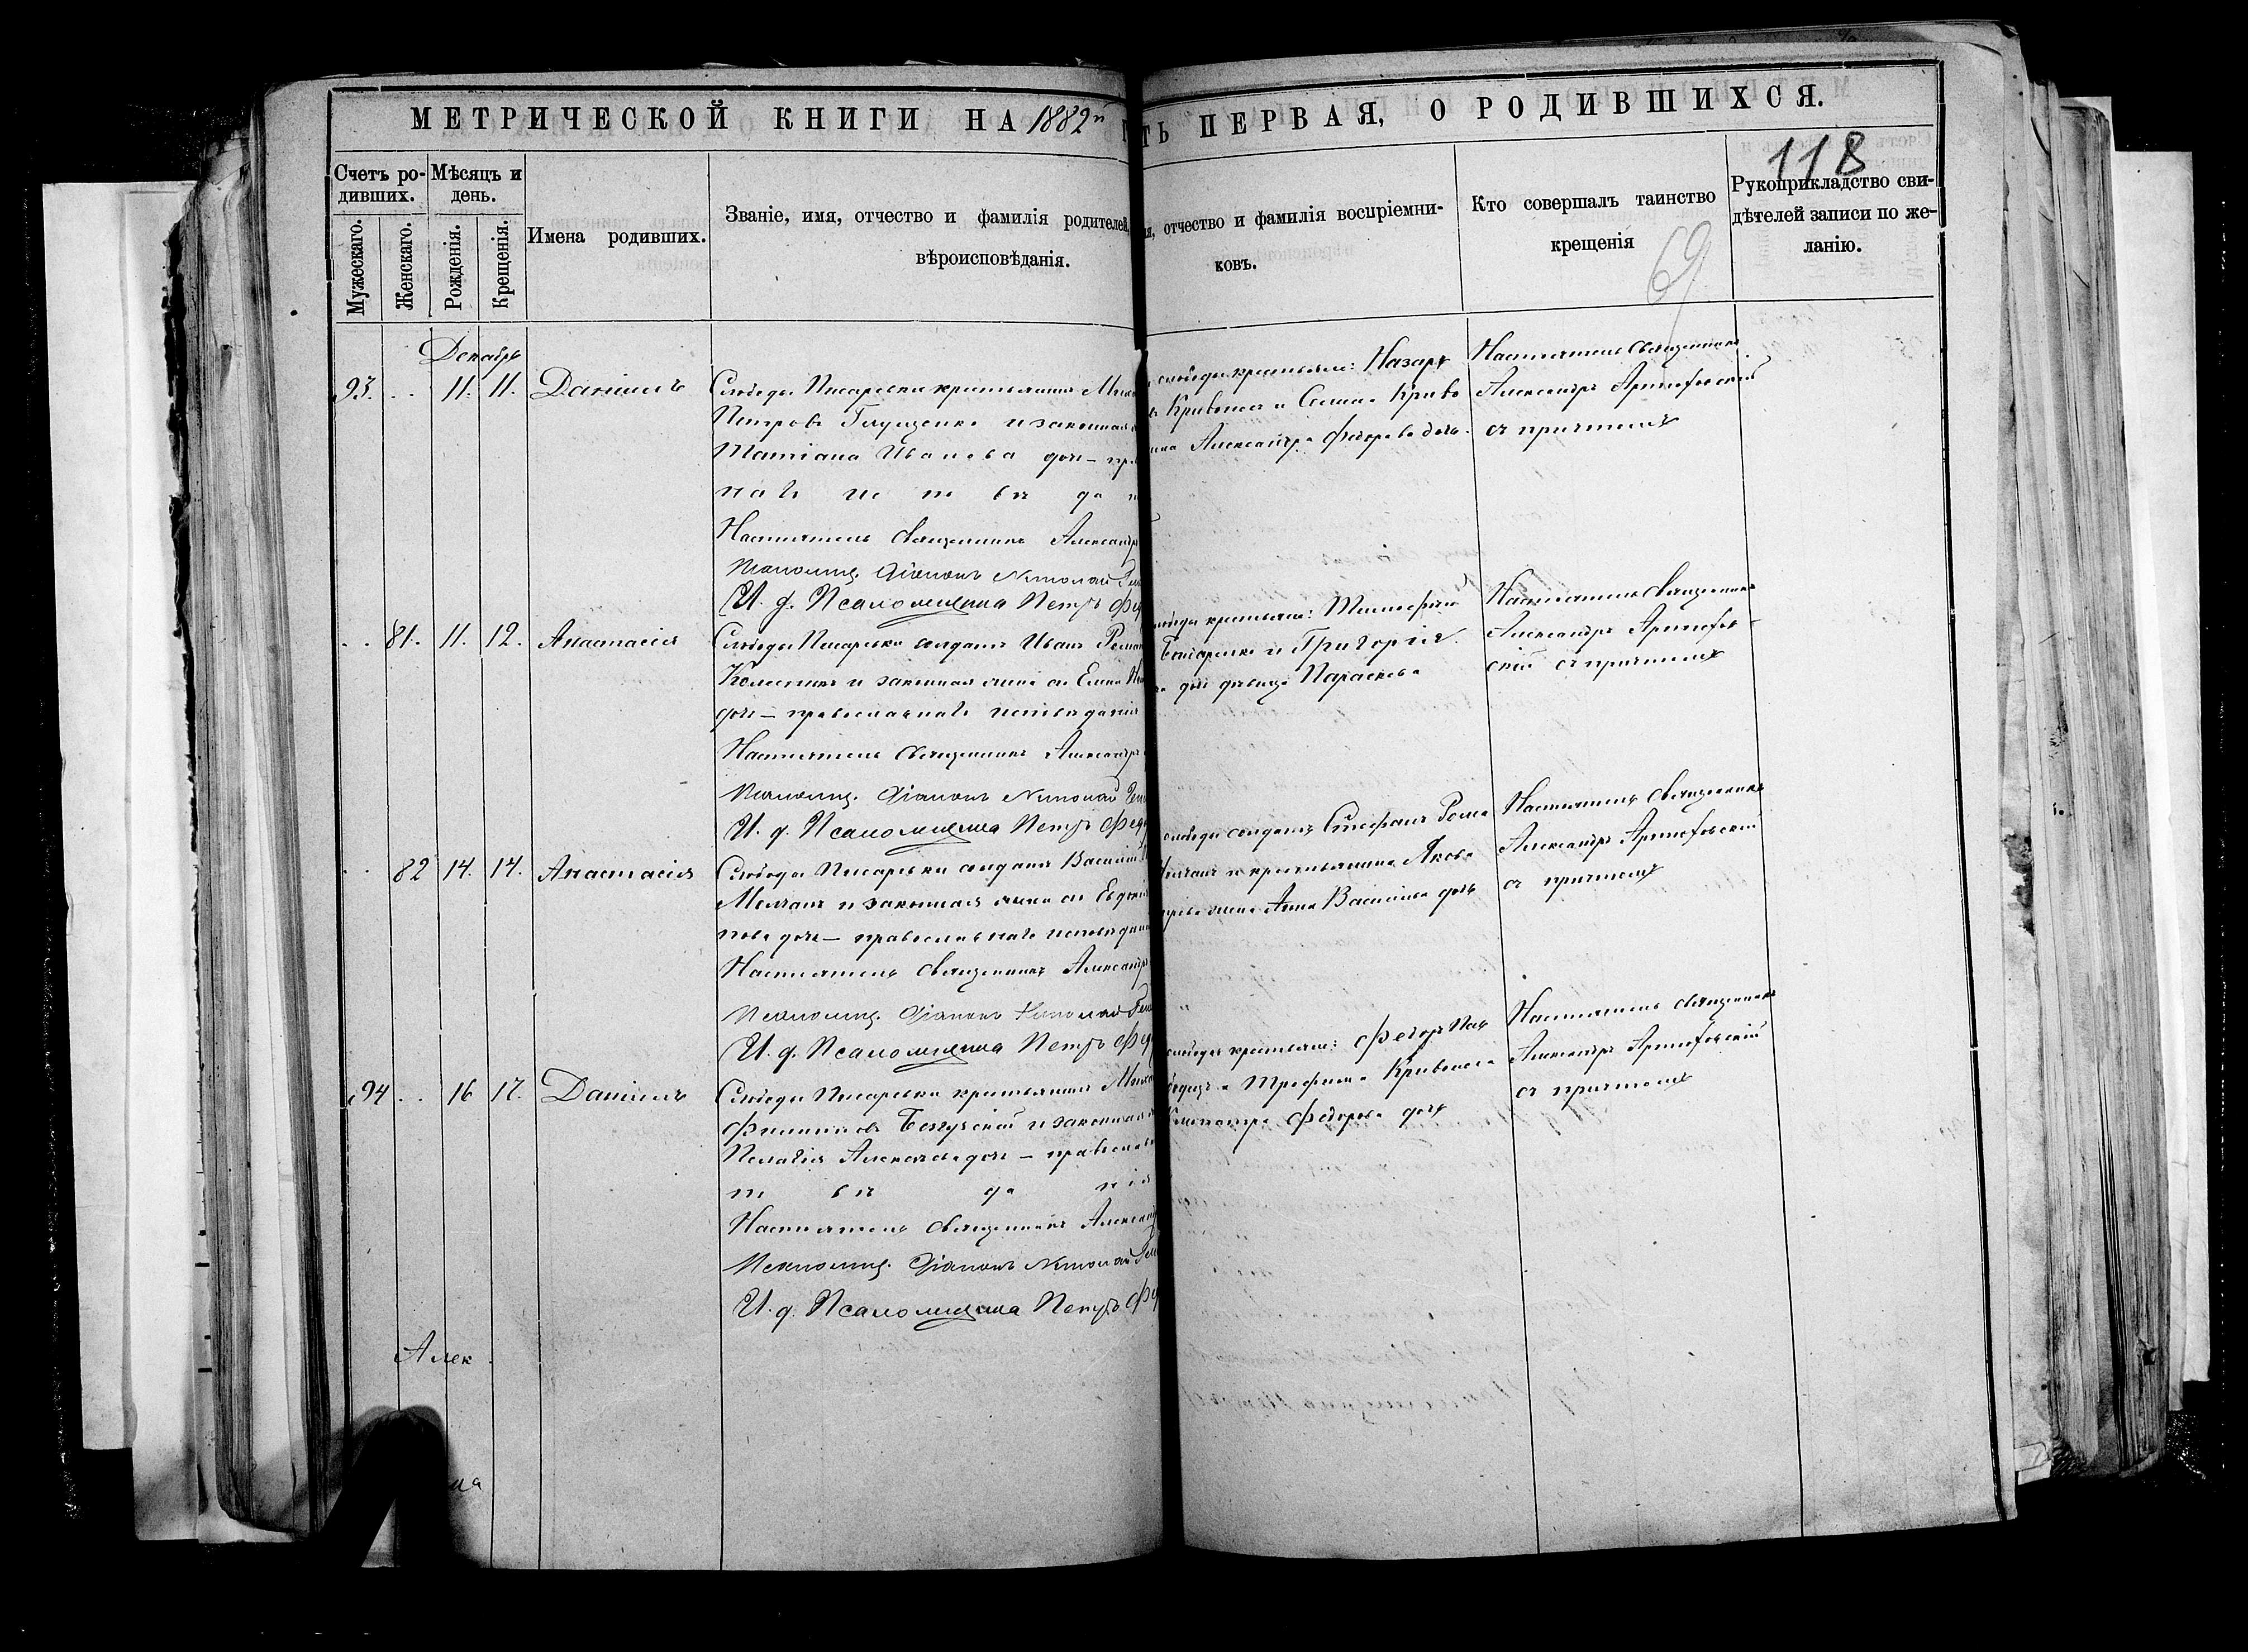 МЕТРИЧЕСКОЙ КНИГИ НА 1882й
ТЬ ПЕРВАЯ, О РОДИВШИХСЯ.
118
69
Счетъ ро-
дивших.
Мужескаго.
Женскаго.
Мѣсяцъ и
день.
Рожденія.
Крещенія.
Имена родивших.
Званіе, имя, отчество и фамилія родителей,
вѣроисповѣданія.
отчество и фамилія воспріемни-
ковъ.
Кто совершалъ таинство
крещенія
Рукоприкладство сви-
дѣтелей записи по же-
ланію.
Декабрь
93. .. 11. 11. Даніилъ
Слободы Писаревки крестьянинъ
Петровъ Глущенко и законная
Татіана Иванова доч—
наго и п в да
Настоятель Священникъ Александръ
Псаломщ. Діаконъ Николай
И. д. Псаломщика Петръ
слободы крестьяне: Назаръ
Кривонса и Криво
Александра Федорова дочь.
Настоятель Священникъ
Александръ Артюховскій
съ причтомъ
.. 81. 11. 12. Анастасія
Слободы Писаревки солдатъ Иванъ
Колесникъ и законная жена ег Елена
доч— православнаго исповѣданія
Настоятель Священникъ Александръ
Псаломщ. Діаконъ Николай
И. д. Псаломщика Петръ
крестьяне:
Бондаренко и Григорія
доч дѣвица Параскева
Настоятель Священникъ
Александръ Артюхов-
скій съ причтомъ
.. 82 14. 14. Анастасія
Слободы Писаревки солдатъ Василій
Молчанъ и законная жена ег
нова доч— православнаго исповѣдан
Настоятель Священникъ Александръ
Псаломщ. Діаконъ Николай
И. д. Псаломщика Петръ
слободы солдатъ Стефанъ
и крестьянина Якова
жена Анна Васильева дочь
Настоятель Священникъ
Александръ Артюховскій
съ причтомъ
94 .. 16 17. Даніилъ
Слободы Писаревки крестьянинъ
Филиповъ и законная
Пелагія Алексѣева доч— православ
п вѣ да нія
Настоятель Священникъ Александ
Псаломщ. Діаконъ Николай
И. д. Псаломщика Петръ
слободы крестьяне: Федоръ
Трофима Кривонса
Федорова дочь
Настоятель Священникъ
Александръ Артюховскій
съ причтомъ
Алек